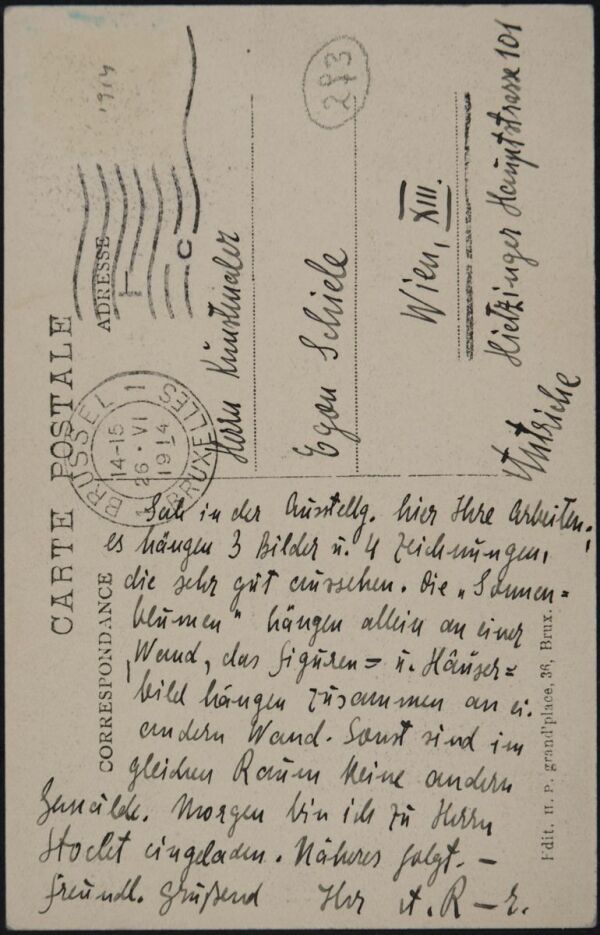 CARTE POSTALE
CORRESPONDANCE
ADRESSE
1914
293
BRÜSSEL 1 BRUXELLES
14-15
26·VI
1914
Herrn Kunstmaler
Egon Schiele
Wien, XIII.
Hietzinger Hauptstrasse 101
Autriche
Sah in der Ausstellg. hier Ihre Arbeiten;
es hängen 3 Bilder u. 4 Zeichnungen,
die sehr gut aussehen. Die „Sonnen=
blumen" hängen allein an einer
Wand, das Figuren= u. Häuser=
bild hängen zusammen an ei.
andern Wand. Sonst sind im
gleichen Raum keine andern
Gemälde. Morgen bin ich zu Herrn
Stoclet eingeladen. Näheres folgt. —
Freundl. grüßend Ihr A. R—r.
Edit. H. P. grand'place, 36, Brux.